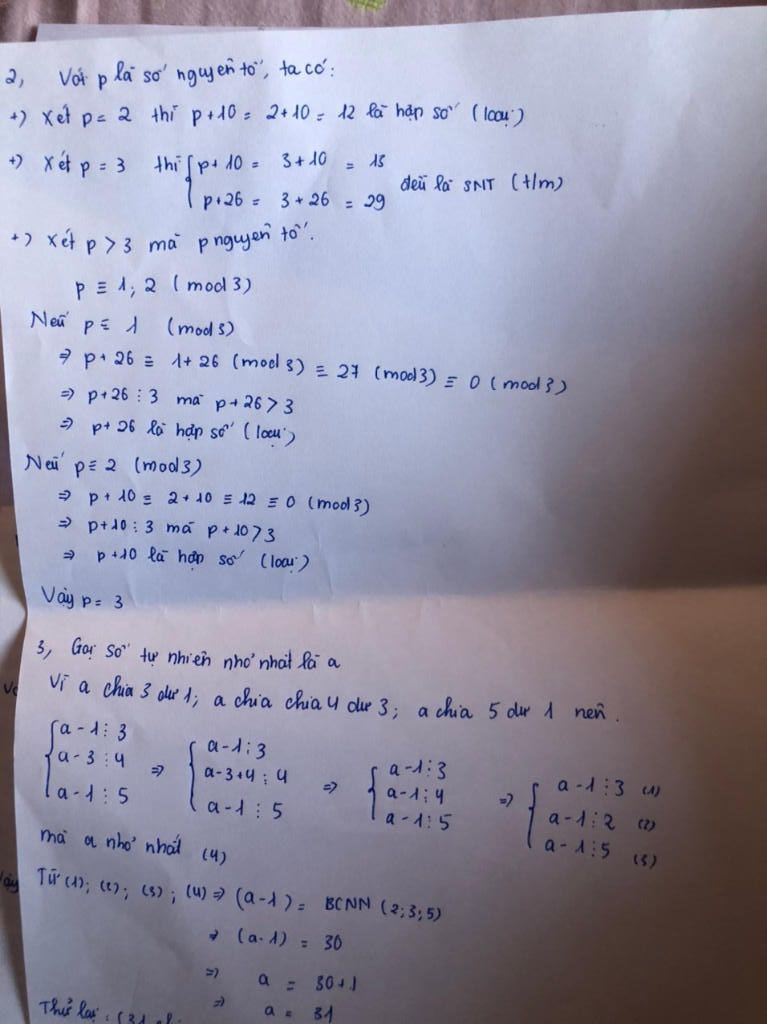 2, Với p là số nguyên tố, ta có:
+) Xét p = 2 thì p+10 = 2+10 = 12 là hợp số (loại)
+) Xét p = 3 thì { p+10 = 3+10 = 13
p+26 = 3+26 = 29 đều là SNT (t/m)
+) Xét p > 3 mà p nguyên tố.
p ≡ 1; 2 (mod 3)
Nếu p ≡ 1 (mod 3)
⇒ p+26 ≡ 1+26 (mod 3) ≡ 27 (mod 3) ≡ 0 (mod 3)
⇒ p+26 ⋮ 3 mà p+26 > 3
⇒ p+26 là hợp số (loại)
Nếu p ≡ 2 (mod 3)
⇒ p+10 ≡ 2+10 ≡ 12 ≡ 0 (mod 3)
⇒ p+10 ⋮ 3 mà p+10 > 3
⇒ p+10 là hợp số (loại)
Vậy p = 3
3, Gọi số tự nhiên nhỏ nhất là a
Vì a chia 3 dư 1; a chia chia 4 dư 3; a chia 5 dư 1 nên.
{ a-1 ⋮ 3 ⇒ { a-1 ⋮ 3 ⇒ { a-1 ⋮ 3 ⇒ { a-1 ⋮ 3 (1)
a-3 ⋮ 4 a-3+4 ⋮ 4 a-1 ⋮ 4 a-1 ⋮ 2 (2)
a-1 ⋮ 5 a-1 ⋮ 5 a-1 ⋮ 5 a-1 ⋮ 5 (3)
mà a nhỏ nhất (4)
Từ (1); (2); (3); (4) ⇒ (a-1) = BCNN (2;3;5)
⇒ (a-1) = 30
⇒ a = 30+1
⇒ a = 31
Thử lại: (31